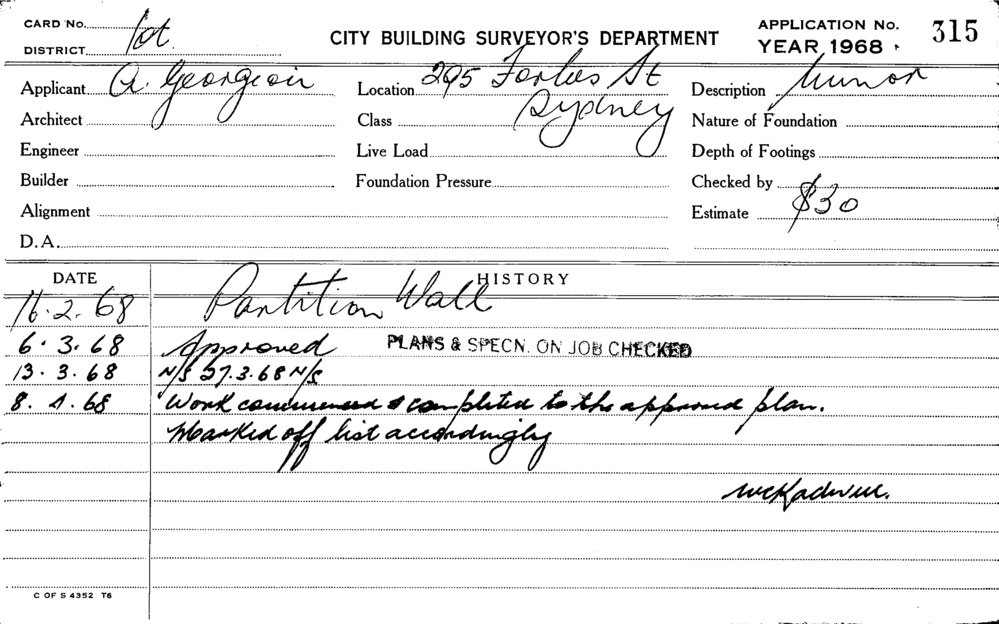 CARD No.
DISTRICT 1st.
CITY BUILDING SURVEYOR'S DEPARTMENT
APPLICATION No. 315
YEAR 1968
Applicant A. Georgeoir
Location 295 Forbes St
Sydney
Description Minor
Architect
Class
Nature of Foundation
Engineer
Live Load
Depth of Footings
Builder
Foundation Pressure
Checked by
Alignment
Estimate $30
D.A.
DATE HISTORY
16.2.68 Partition Wall
6.3.68 Approved PLANS & SPECN. ON JOB CHECKED
13.3.68 N/S 27.3.68 N/S
8.4.68 Work commenced & completed to the approved plan.
Marked off list accordingly
C OF S 4352 T6